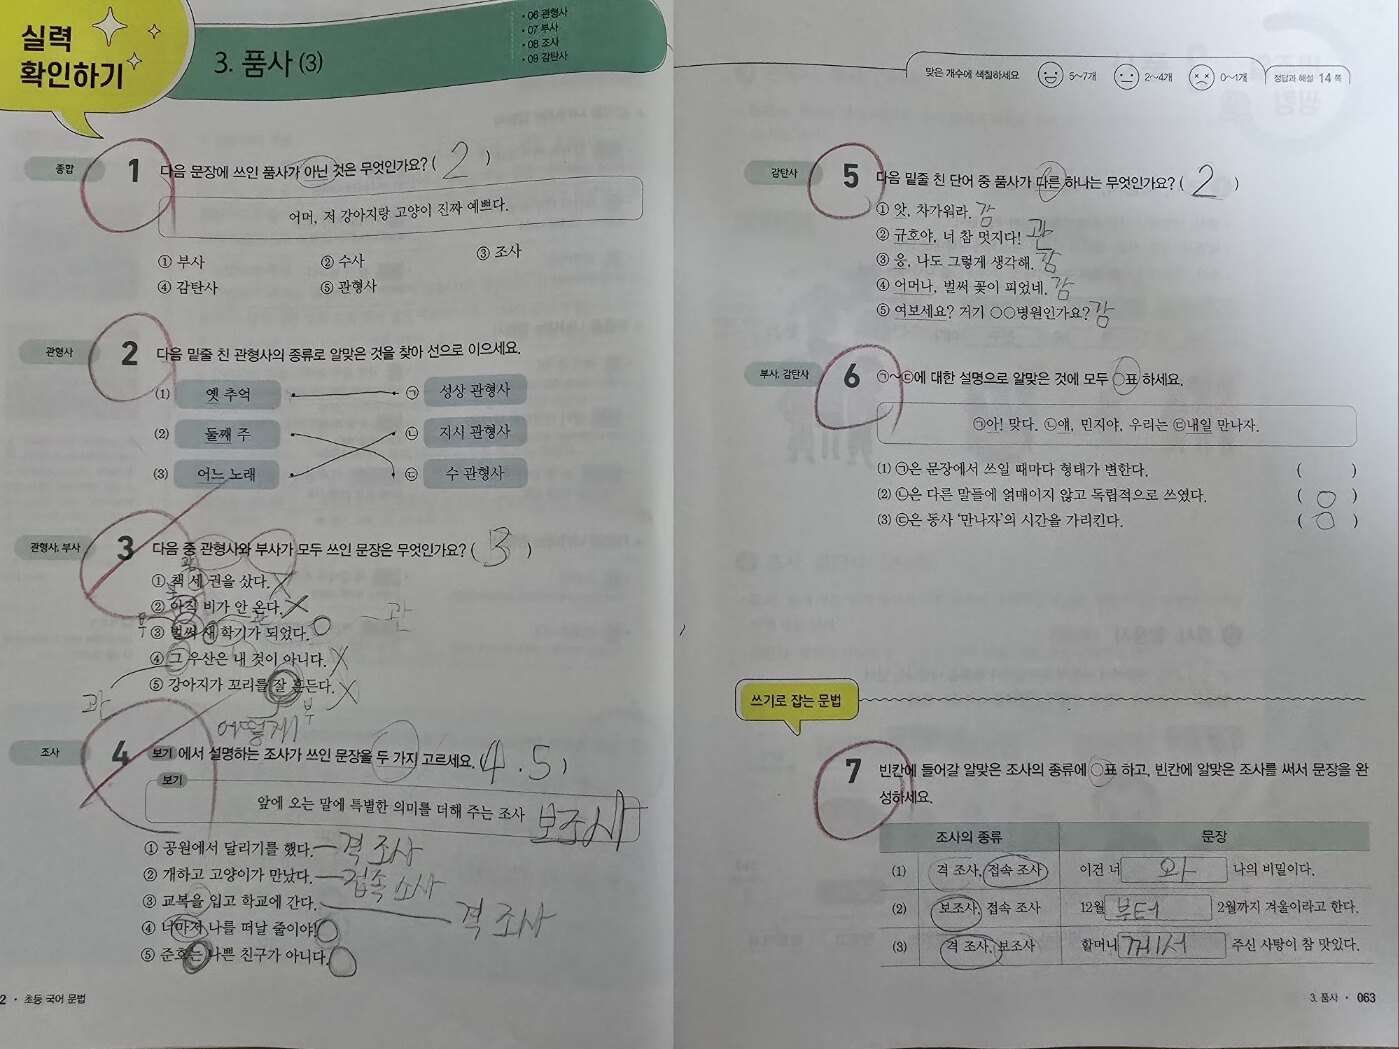 실력
확인하기
3. 품사 (3)
• 06 관형사
• 07 부사
• 08 조사
• 09 감탄사
종합
1 다음 문장에 쓰인 품사가 아닌 것은 무엇인가요? ( 2 )
어머, 저 강아지랑 고양이 진짜 예쁘다.
① 부사 ② 수사 ③ 조사
④ 감탄사 ⑤ 관형사
관형사
2 다음 밑줄 친 관형사의 종류로 알맞은 것을 찾아 선으로 이으세요.
(1) 옛 추억 ㉠ 성상 관형사
(2) 둘째 주 ㉡ 지시 관형사
(3) 어느 노래 ㉢ 수 관형사
관형사, 부사
3 다음 중 관형사와 부사가 모두 쓰인 문장은 무엇인가요? ( 3 )
관
① 책 세 권을 샀다. X
부
② 아직 비가 안 온다. X
부 관
③ 벌써 새 학기가 되었다. ○ ~관
④ 그 우산은 내 것이 아니다. X
⑤ 강아지가 꼬리를 잘 흔든다. X
관 부
어떻게
조사
4 보기 에서 설명하는 조사가 쓰인 문장을 두 가지 고르세요. ( 4 . 5 )
보기
앞에 오는 말에 특별한 의미를 더해 주는 조사 보조사
① 공원에서 달리기를 했다. 격 조사
② 개하고 고양이가 만났다. 접속 조사
③ 교복을 입고 학교에 간다. 격 조사
④ 너마저 나를 떠날 줄이야! ○
⑤ 준호는 나쁜 친구가 아니다. ○
2 • 초등 국어 문법
맞은 개수에 색칠하세요 5~7개 2~4개 0~1개 정답과 해설 14 쪽
감탄사
5 다음 밑줄 친 단어 중 품사가 다른 하나는 무엇인가요? ( 2 )
① 앗, 차가워라. 감
② 규호야, 너 참 멋지다! 관
③ 응, 나도 그렇게 생각해. 감
④ 어머나, 벌써 꽃이 피었네. 감
⑤ 여보세요? 거기 ○○병원인가요? 감
부사, 감탄사
6 ㉠~㉢에 대한 설명으로 알맞은 것에 모두 ○표 하세요.
㉠아! 맞다. ㉡얘, 민지야, 우리는 ㉢내일 만나자.
(1) ㉠은 문장에서 쓰일 때마다 형태가 변한다. ( )
(2) ㉡은 다른 말들에 얽매이지 않고 독립적으로 쓰였다. ( ○ )
(3) ㉢은 동사 ‘만나자’의 시간을 가리킨다. ( ○ )
쓰기로 잡는 문법
7 빈칸에 들어갈 알맞은 조사의 종류에 ○표 하고, 빈칸에 알맞은 조사를 써서 문장을 완
성하세요.
조사의 종류 문장
(1) 격 조사, 접속 조사 이건 너 와 나의 비밀이다.
(2) 보조사, 접속 조사 12월 부터 2월까지 겨울이라고 한다.
(3) 격 조사, 보조사 할머니 께서 주신 사탕이 참 맛있다.
3. 품사 • 063